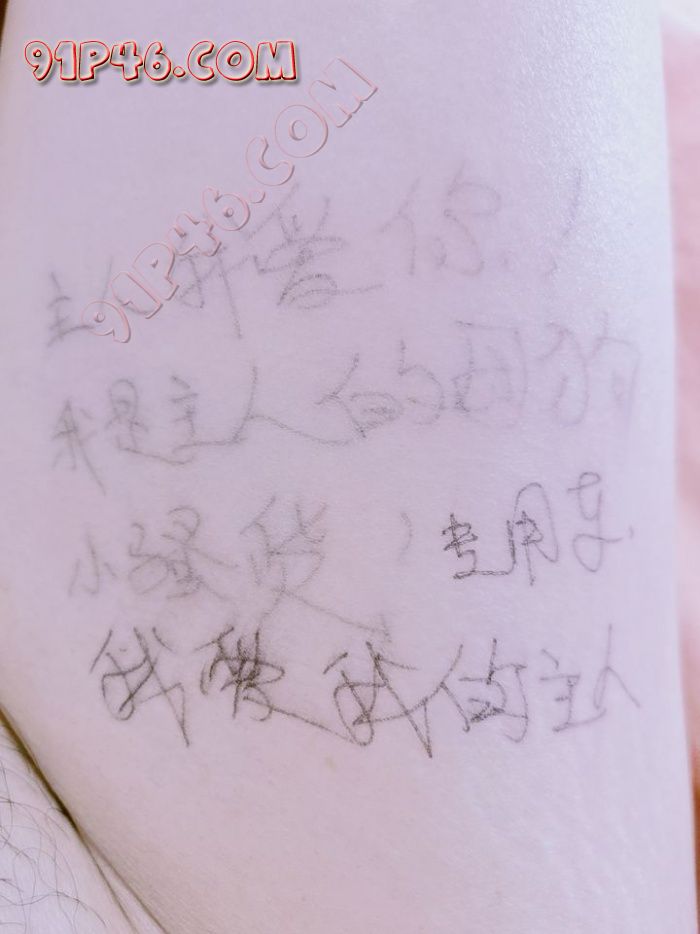 91P46.COM
91P46.COM
主人 爱你！
我是主人的母狗
小骚货，专用
我爱我的主人